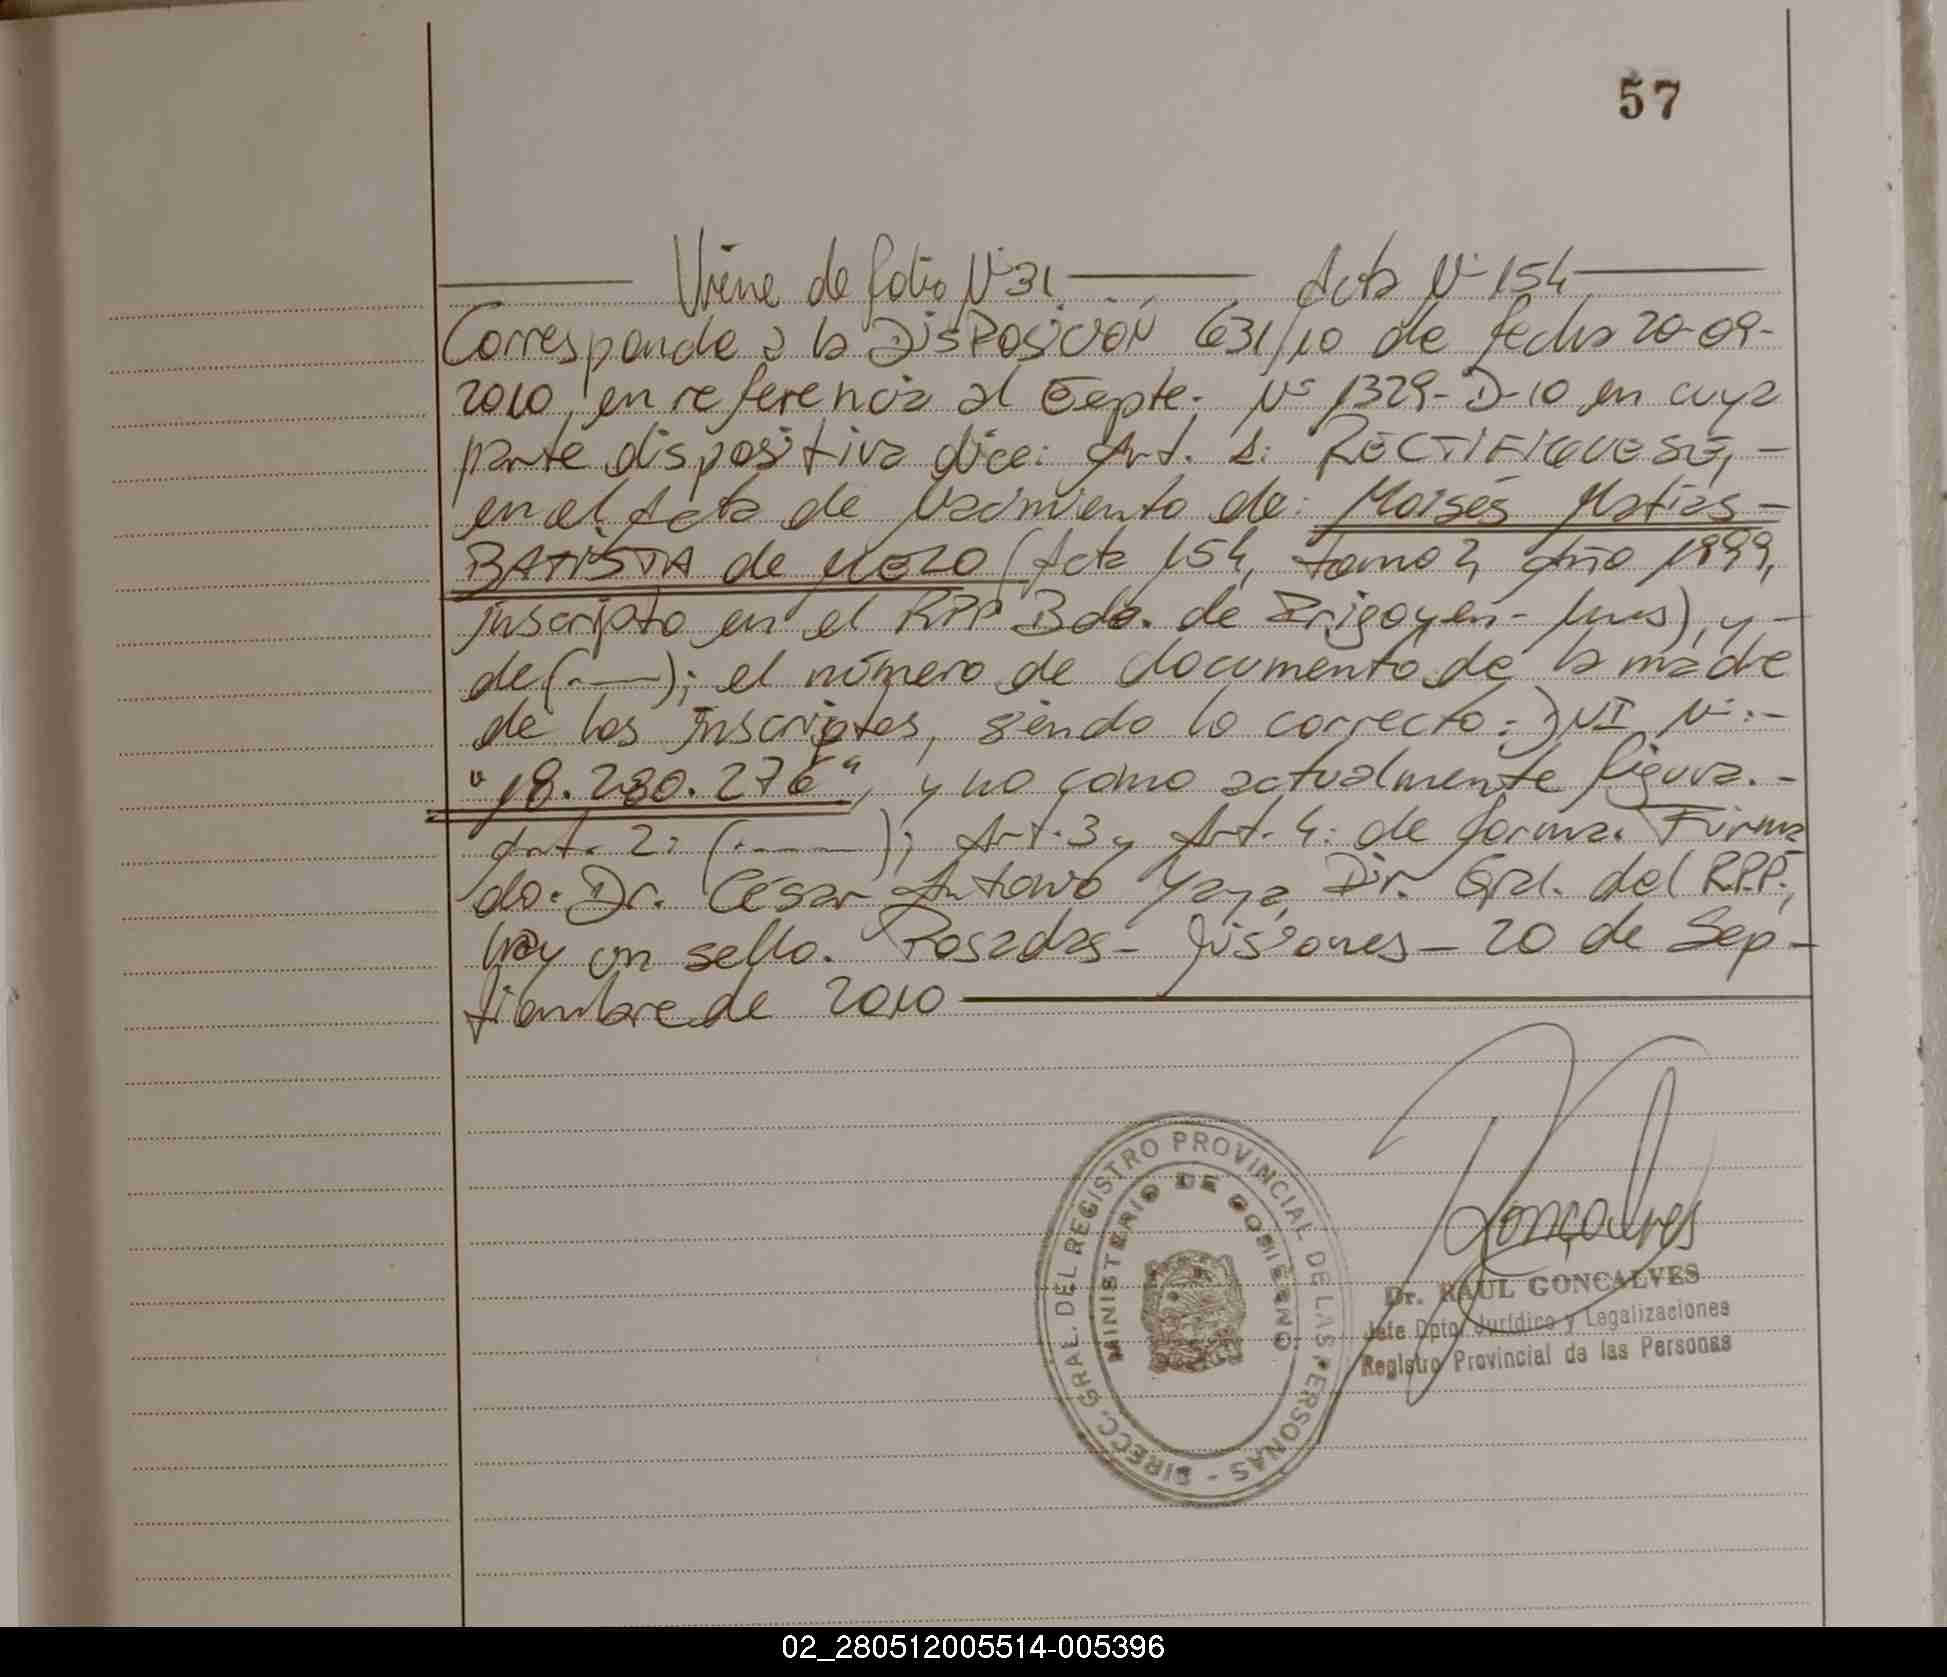 57
Viene de folio Nº 31 Acta Nº 154
Corresponde a la DISPOSICIÓN 631/10 de fecha 20-09-
2010, en referencia al Expte. Nº 1329-D-10 en cuya
parte dispositiva dice: Art. 1: RECTIFIQUESE, -
en el Acta de Nacimiento de: Moisés Matias -
BATISTA de MELO (Acta 154, tomo 2, Año 1999,
inscripto en el RPP Bdo. de Irigoyen - Mnes), y -
de (.——); el número de documento de la madre
de los inscriptos, siendo lo correcto: DNI Nº: -
"18.280.276", y no como actualmente figura. -
Art. 2: (.———); Art. 3 y Art. 4: de forma. Firma
do. Dr. César Antonio Yaya, Dir. Gral. del R.P.P.,
hay un sello. Posadas - Misiones - 20 de Sep -
tiembre de 2010
Goncalves
Dr. RAUL GONCALVES
Jefe Dpto. Jurídico y Legalizaciones
Registro Provincial de las Personas
DIRECC. GRAL. DEL REGISTRO PROVINCIAL DE LAS PERSONAS -
MINISTERIO DE GOBIERNO
02_280512005514-005396